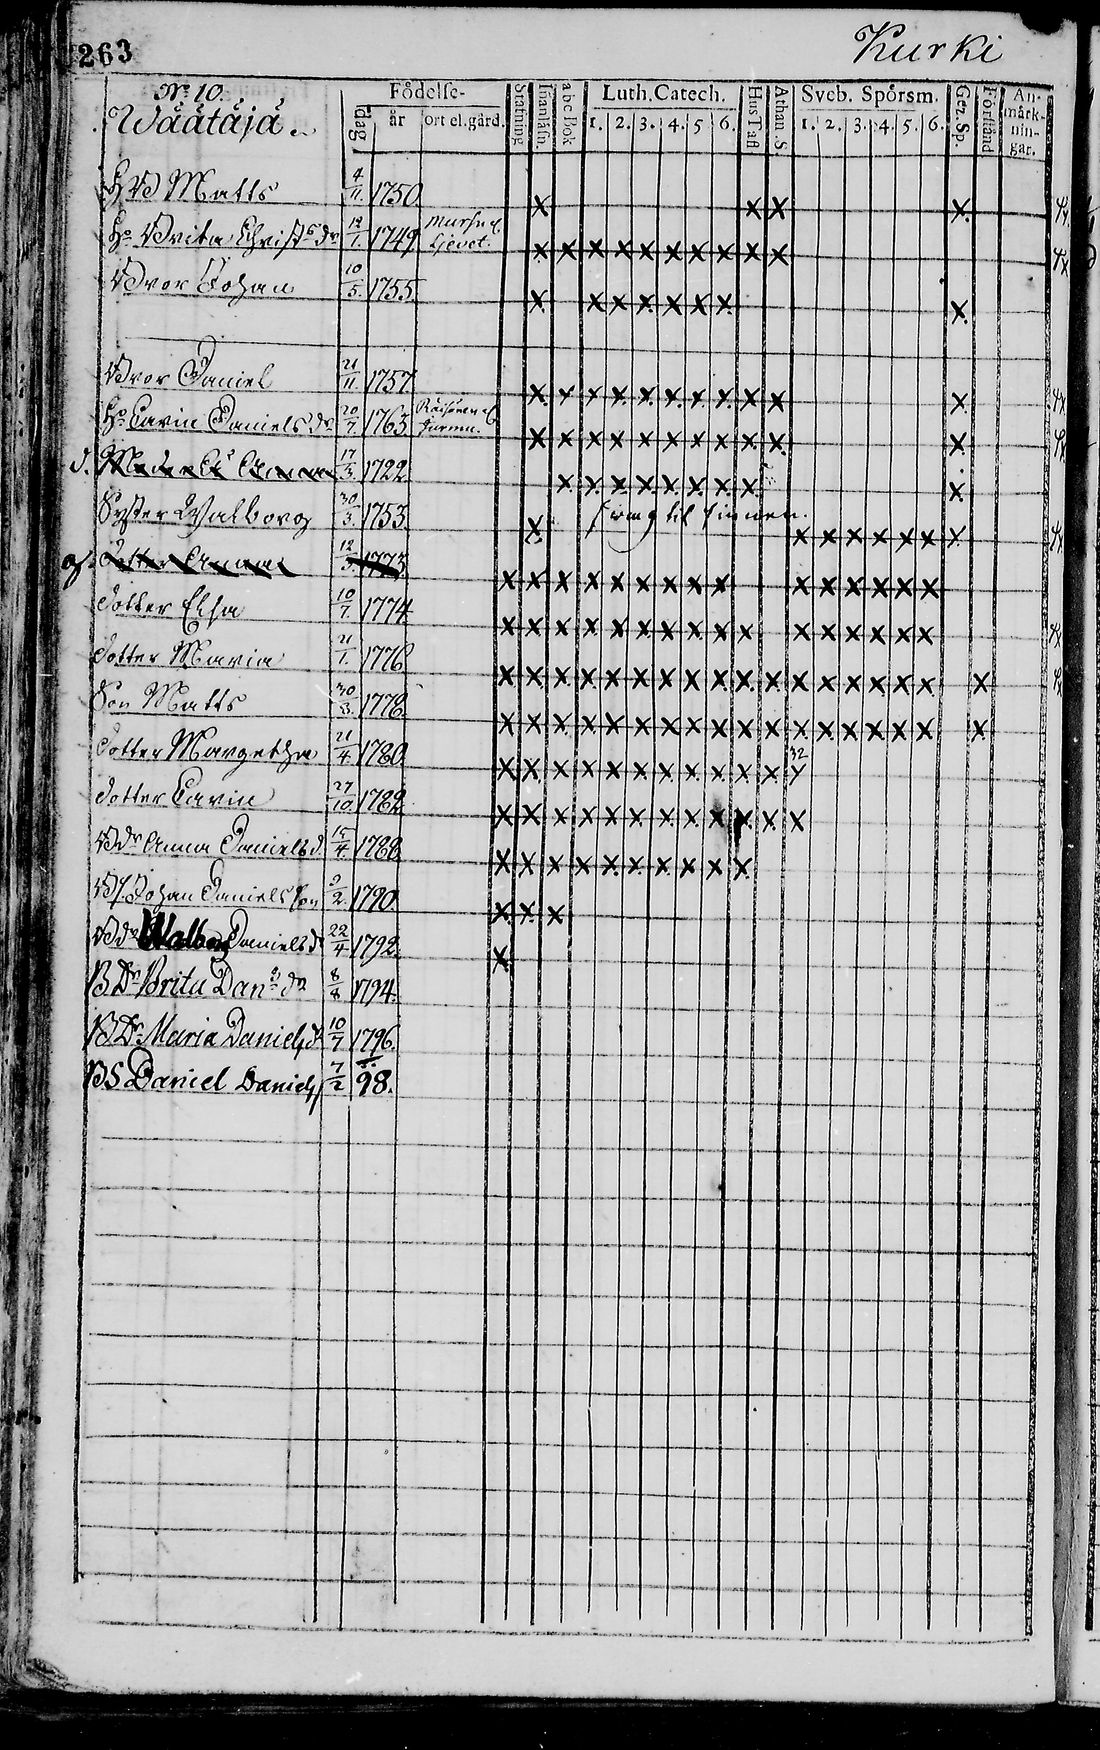 263
Kurki
No 10.
Wäätäjä.
Födelse-
dag
år
ort el. gård.
Stafning
Inanläsn.
abc Bok
Luth. Catech.
1. 2. 3. 4. 5 6.
Hus Tafl
Athan. S
Sveb. Spörsm.
1. 2. 3. 4. 5. 6.
Gez. Sp.
Förstånd
An-
märk-
nin-
gar.
Matts 4/11. 1750. x x x x
Hu Brita Christsdr 12/1. 1749 x x x x x x x x x x x
Bror Johan 10/5. 1755. x x x x x x x x
Bror Daniel 21/11. 1757 x x x x x x x x x x x x
Hu Carin Danielsdr 20/7. 1763 x x x x x x x x x x x x
d. Anna 17/3. 1722. x x x x x x x x x
Syster Walborg 30/3. 1753. x x x x x x x x
Dotter Anna 12/3 1773 x x x x x x x x x x x x x x x
Dotter Elsa 10/7. 1774 x x x x x x x x x x x x x x x x
Dotter Maria 21/1. 1776 x x x x x x x x x x x x x x x x x x
Son Matts 30/3. 1778. x x x x x x x x x x x x x x x x x x
Dotter Margetha 21/4. 1780. x x x x x x x x x x x x 32
Dotter Carin 27/10 1782 x x x x x x x x x x x x
BDr Anna Daniels d. 15/4. 1788. x x x x x x x x x x
BS. Johan Danielsson 9/2. 1790. x x x
BDr Walborg Danielsd 22/4 1792. x
BDr Brita Dans dr 8/8 1794.
BDr Maria Daniels dr 10/7 1796.
BS Daniel Daniels 7/2 98.